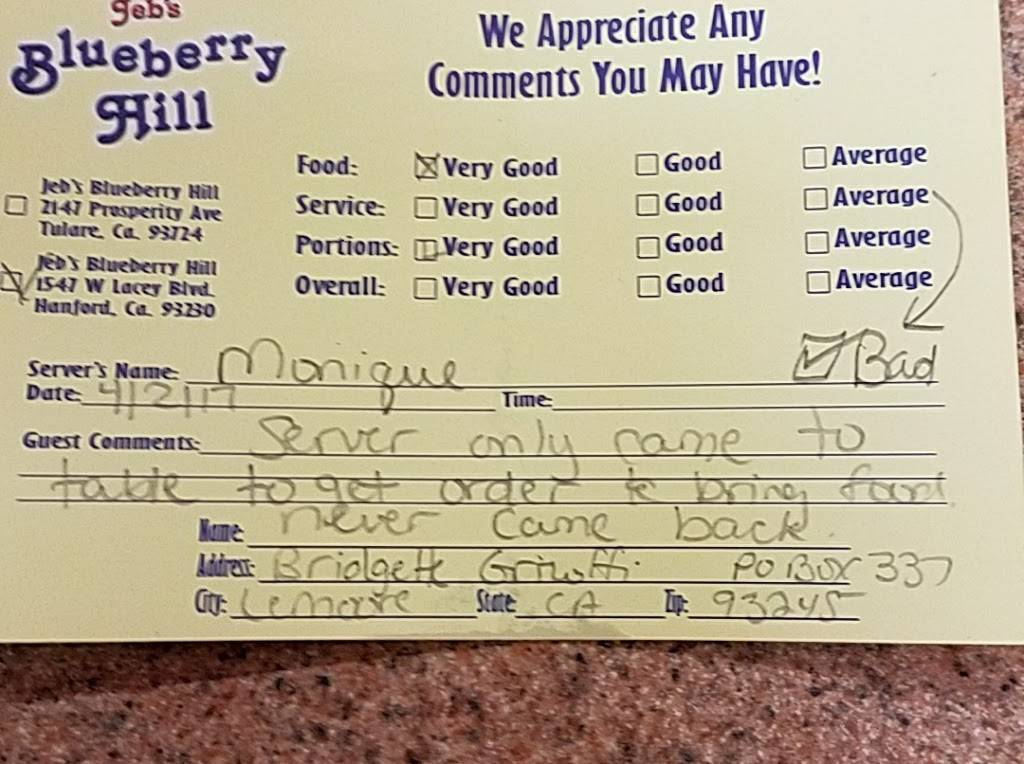 Jeb's
Blueberry
Hill
We Appreciate Any
Comments You May Have!
Jeb's Blueberry Hill
2147 Prosperity Ave
Tulare, Ca. 93724
Jeb's Blueberry Hill
1547 W Lacey Blvd.
Hanford, Ca. 93230
Food: Very Good Good Average
Service: Very Good Good Average
Portions: Very Good Good Average
Overall: Very Good Good Average
Bad
Server's Name: Monique
Date: 4/2/17 Time:
Guest Comments: Server only came to
table to get order & bring food.
Name: never came back.
Address: Bridgette PO Box 337
City: Lemoore State CA Zip: 93245